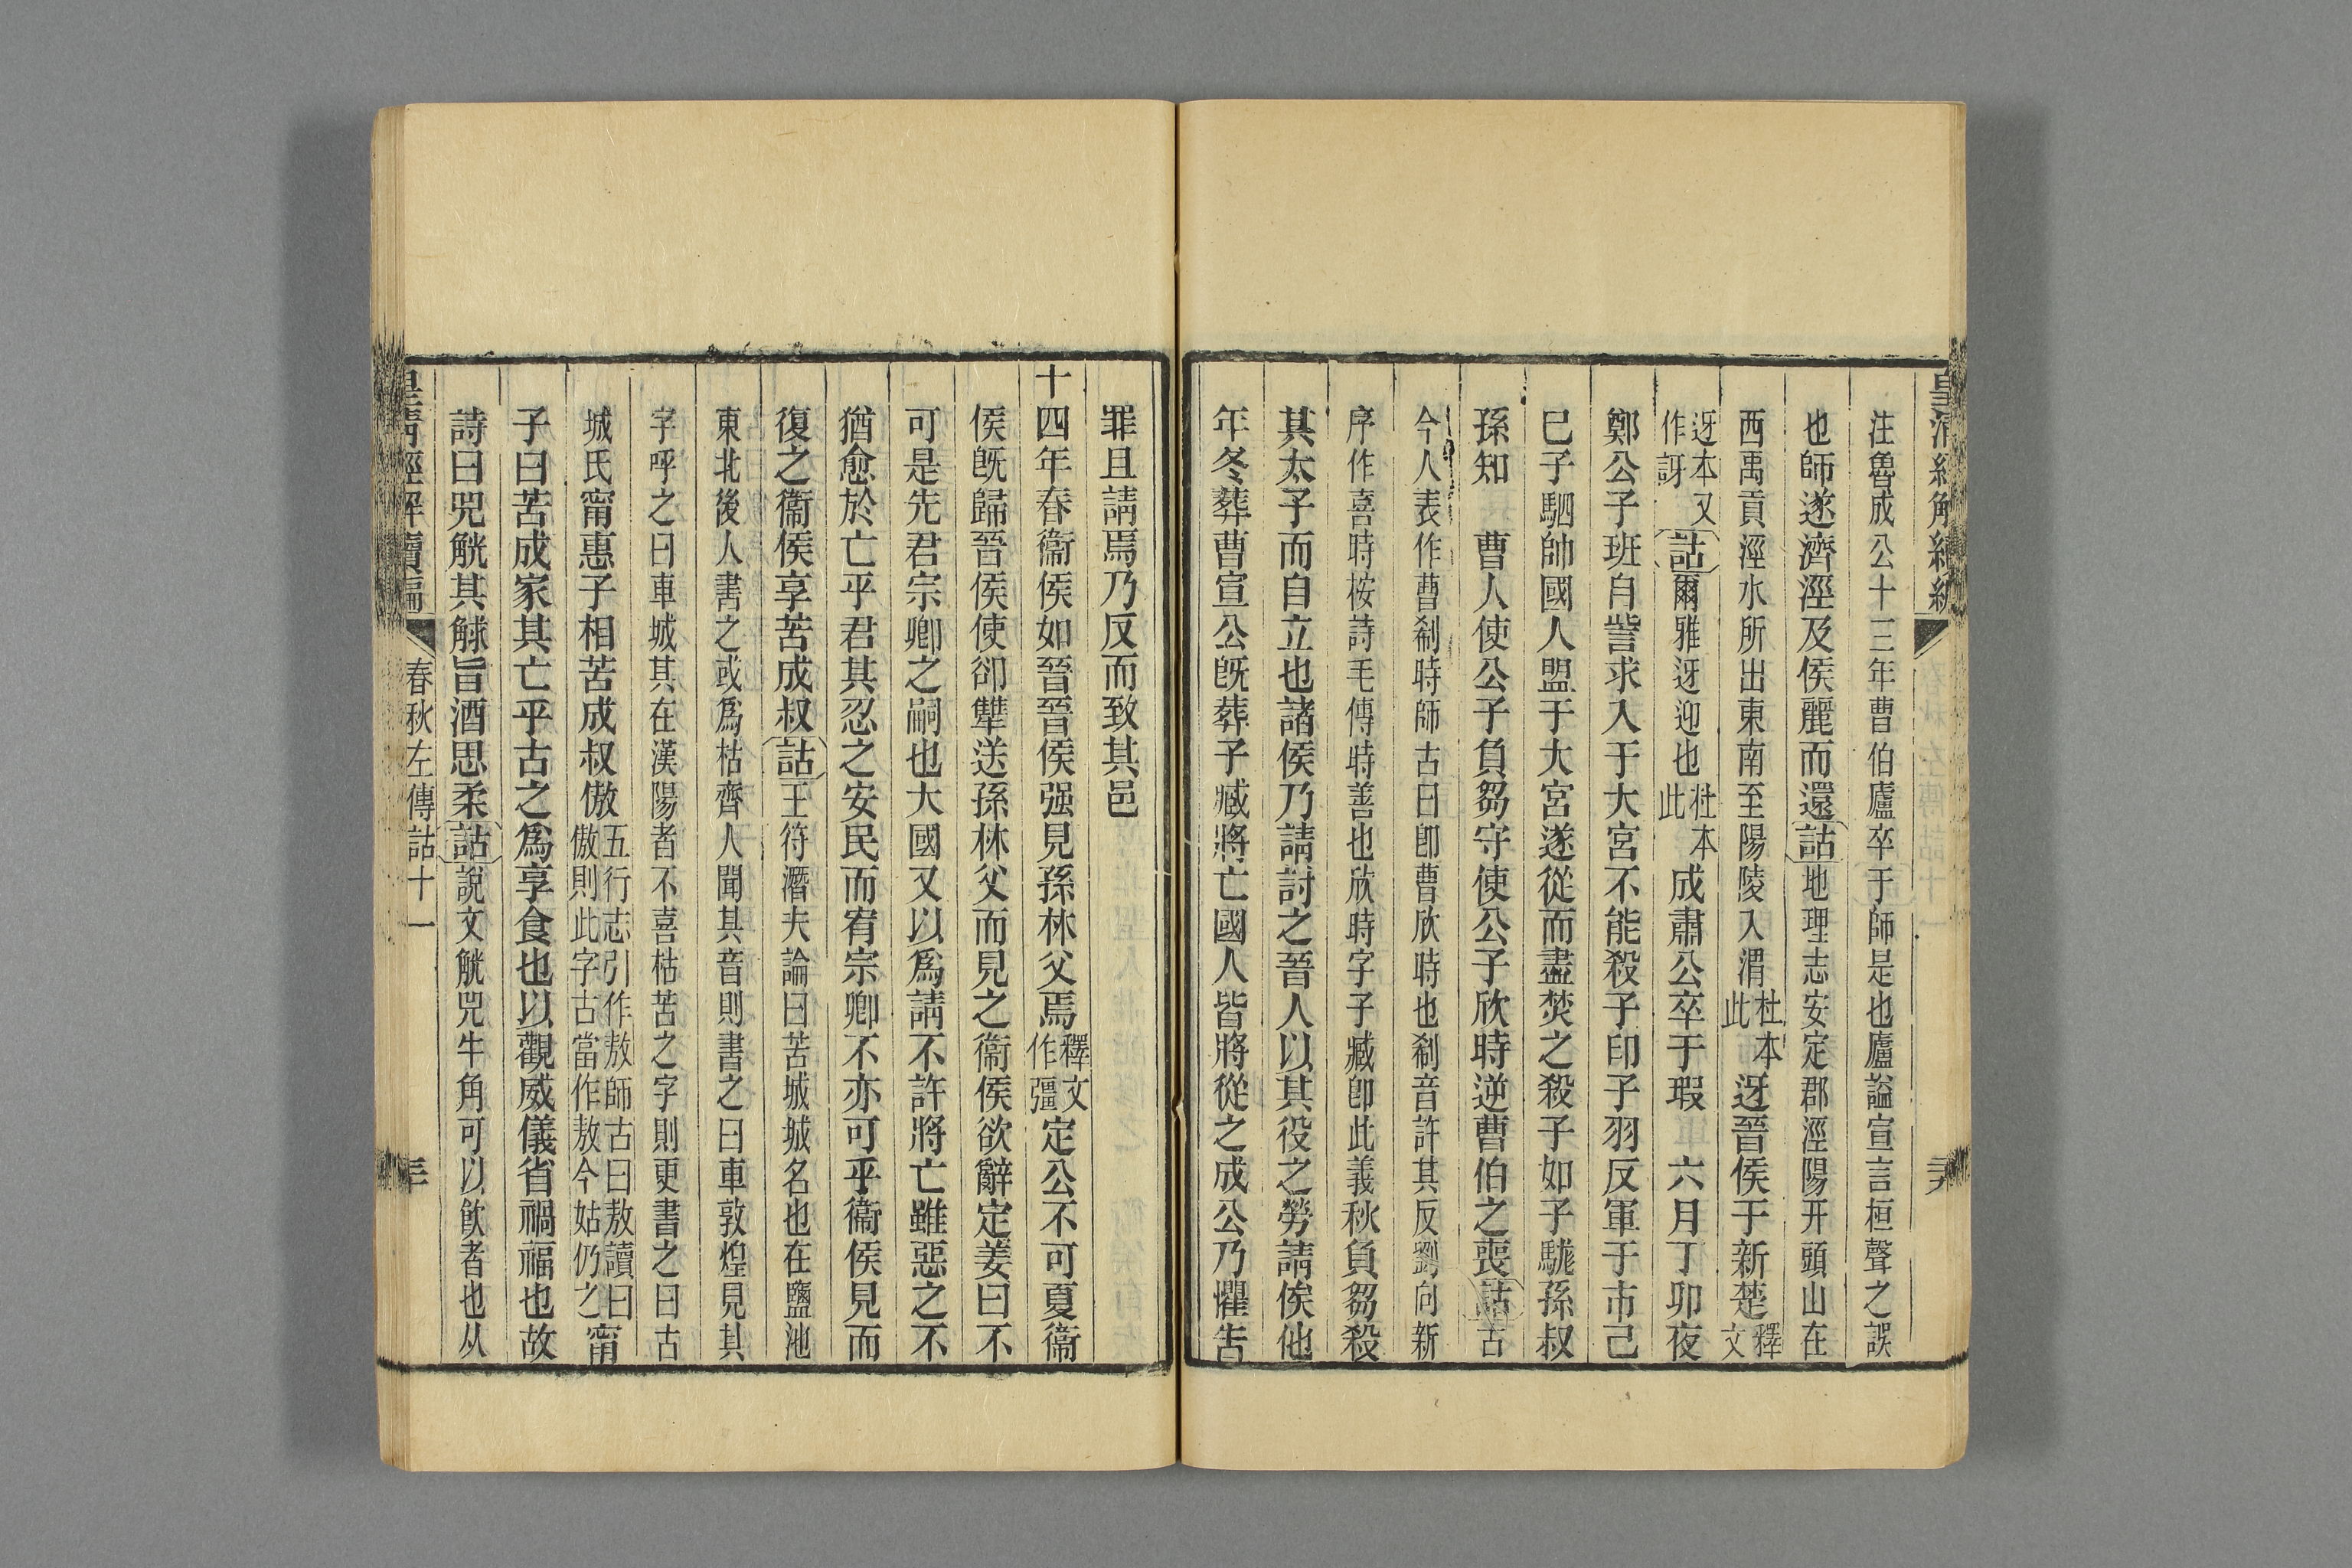 注魯成公十三年曹伯廬卒于師是也廬謚宣言桓聲之誤
也師遂濟涇及侯麗而還詁地理志安定郡涇陽幵頭山在
西禹貢涇水所出東南至陽陵入渭杜本此迓晉侯于新楚釋文
迓本又作訝詁爾雅迓迎也杜本此成肅公卒于瑕 六月丁卯夜
鄭公子班自訾求入于大宮不能殺子印子羽反軍于市己
巳子駟帥國人盟于大宮遂從而盡焚之殺子如子駹孫叔
孫知 曹人使公子負芻守使公子欣時逆曹伯之喪詁古
今人表作曹剎時師古曰卽曹欣時也剎音許其反劉向新
序作喜時桉詩毛傳時善也欣時字子臧卽此義秋負芻殺
其太子而自立也諸侯乃請討之晉人以其役之勞請俟他
年冬葬曹宣公旣葬子臧將亡國人皆將從之成公乃懼告
罪且請焉乃反而致其邑
十四年春衞侯如晉晉侯强見孫林父焉釋文作彊定公不可夏衞
侯旣歸晉侯使卻犨送孫林父而見之衞侯欲辭定姜曰不
可是先君宗卿之嗣也大國又以爲請不許將亡雖惡之不
猶愈於亡乎君其忍之安民而宥宗卿不亦可乎衞侯見而
復之衞侯享苦成叔詁王符潛夫論曰苦城城名也在鹽池
東北後人書之或爲枯齊人聞其音則書之曰車敦煌見其
字呼之曰車城其在漢陽者不喜枯苦之字則更書之曰古
城氏甯惠子相苦成叔傲五行志引作敖師古曰敖讀曰傲則此字古當作敖今姑仍之甯
子曰苦成家其亡乎古之爲享食也以觀威儀省禍福也故
詩曰兕觥其觩旨酒思柔詁說文觥兕牛角可以飲者也从
春秋左傳詁十一